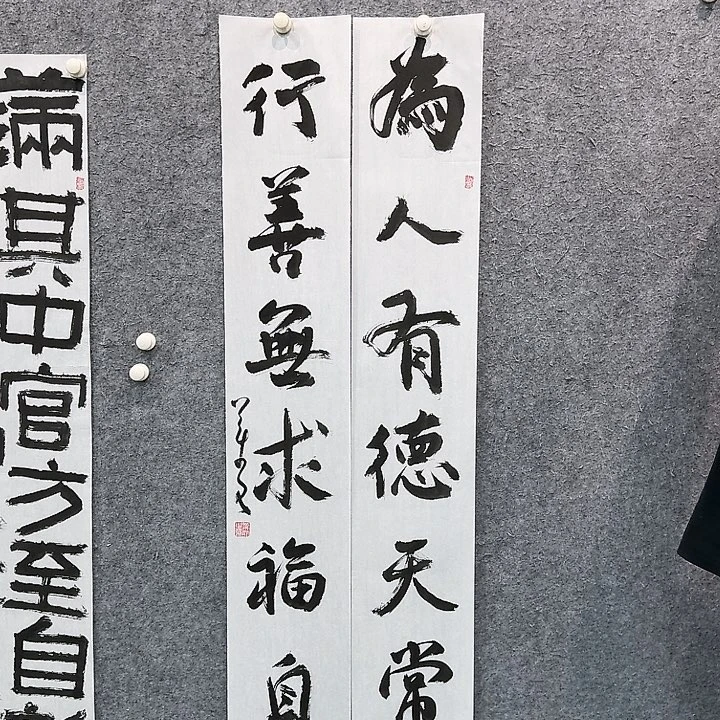 為人有德天常
行善無求福自
滿其中官方至自